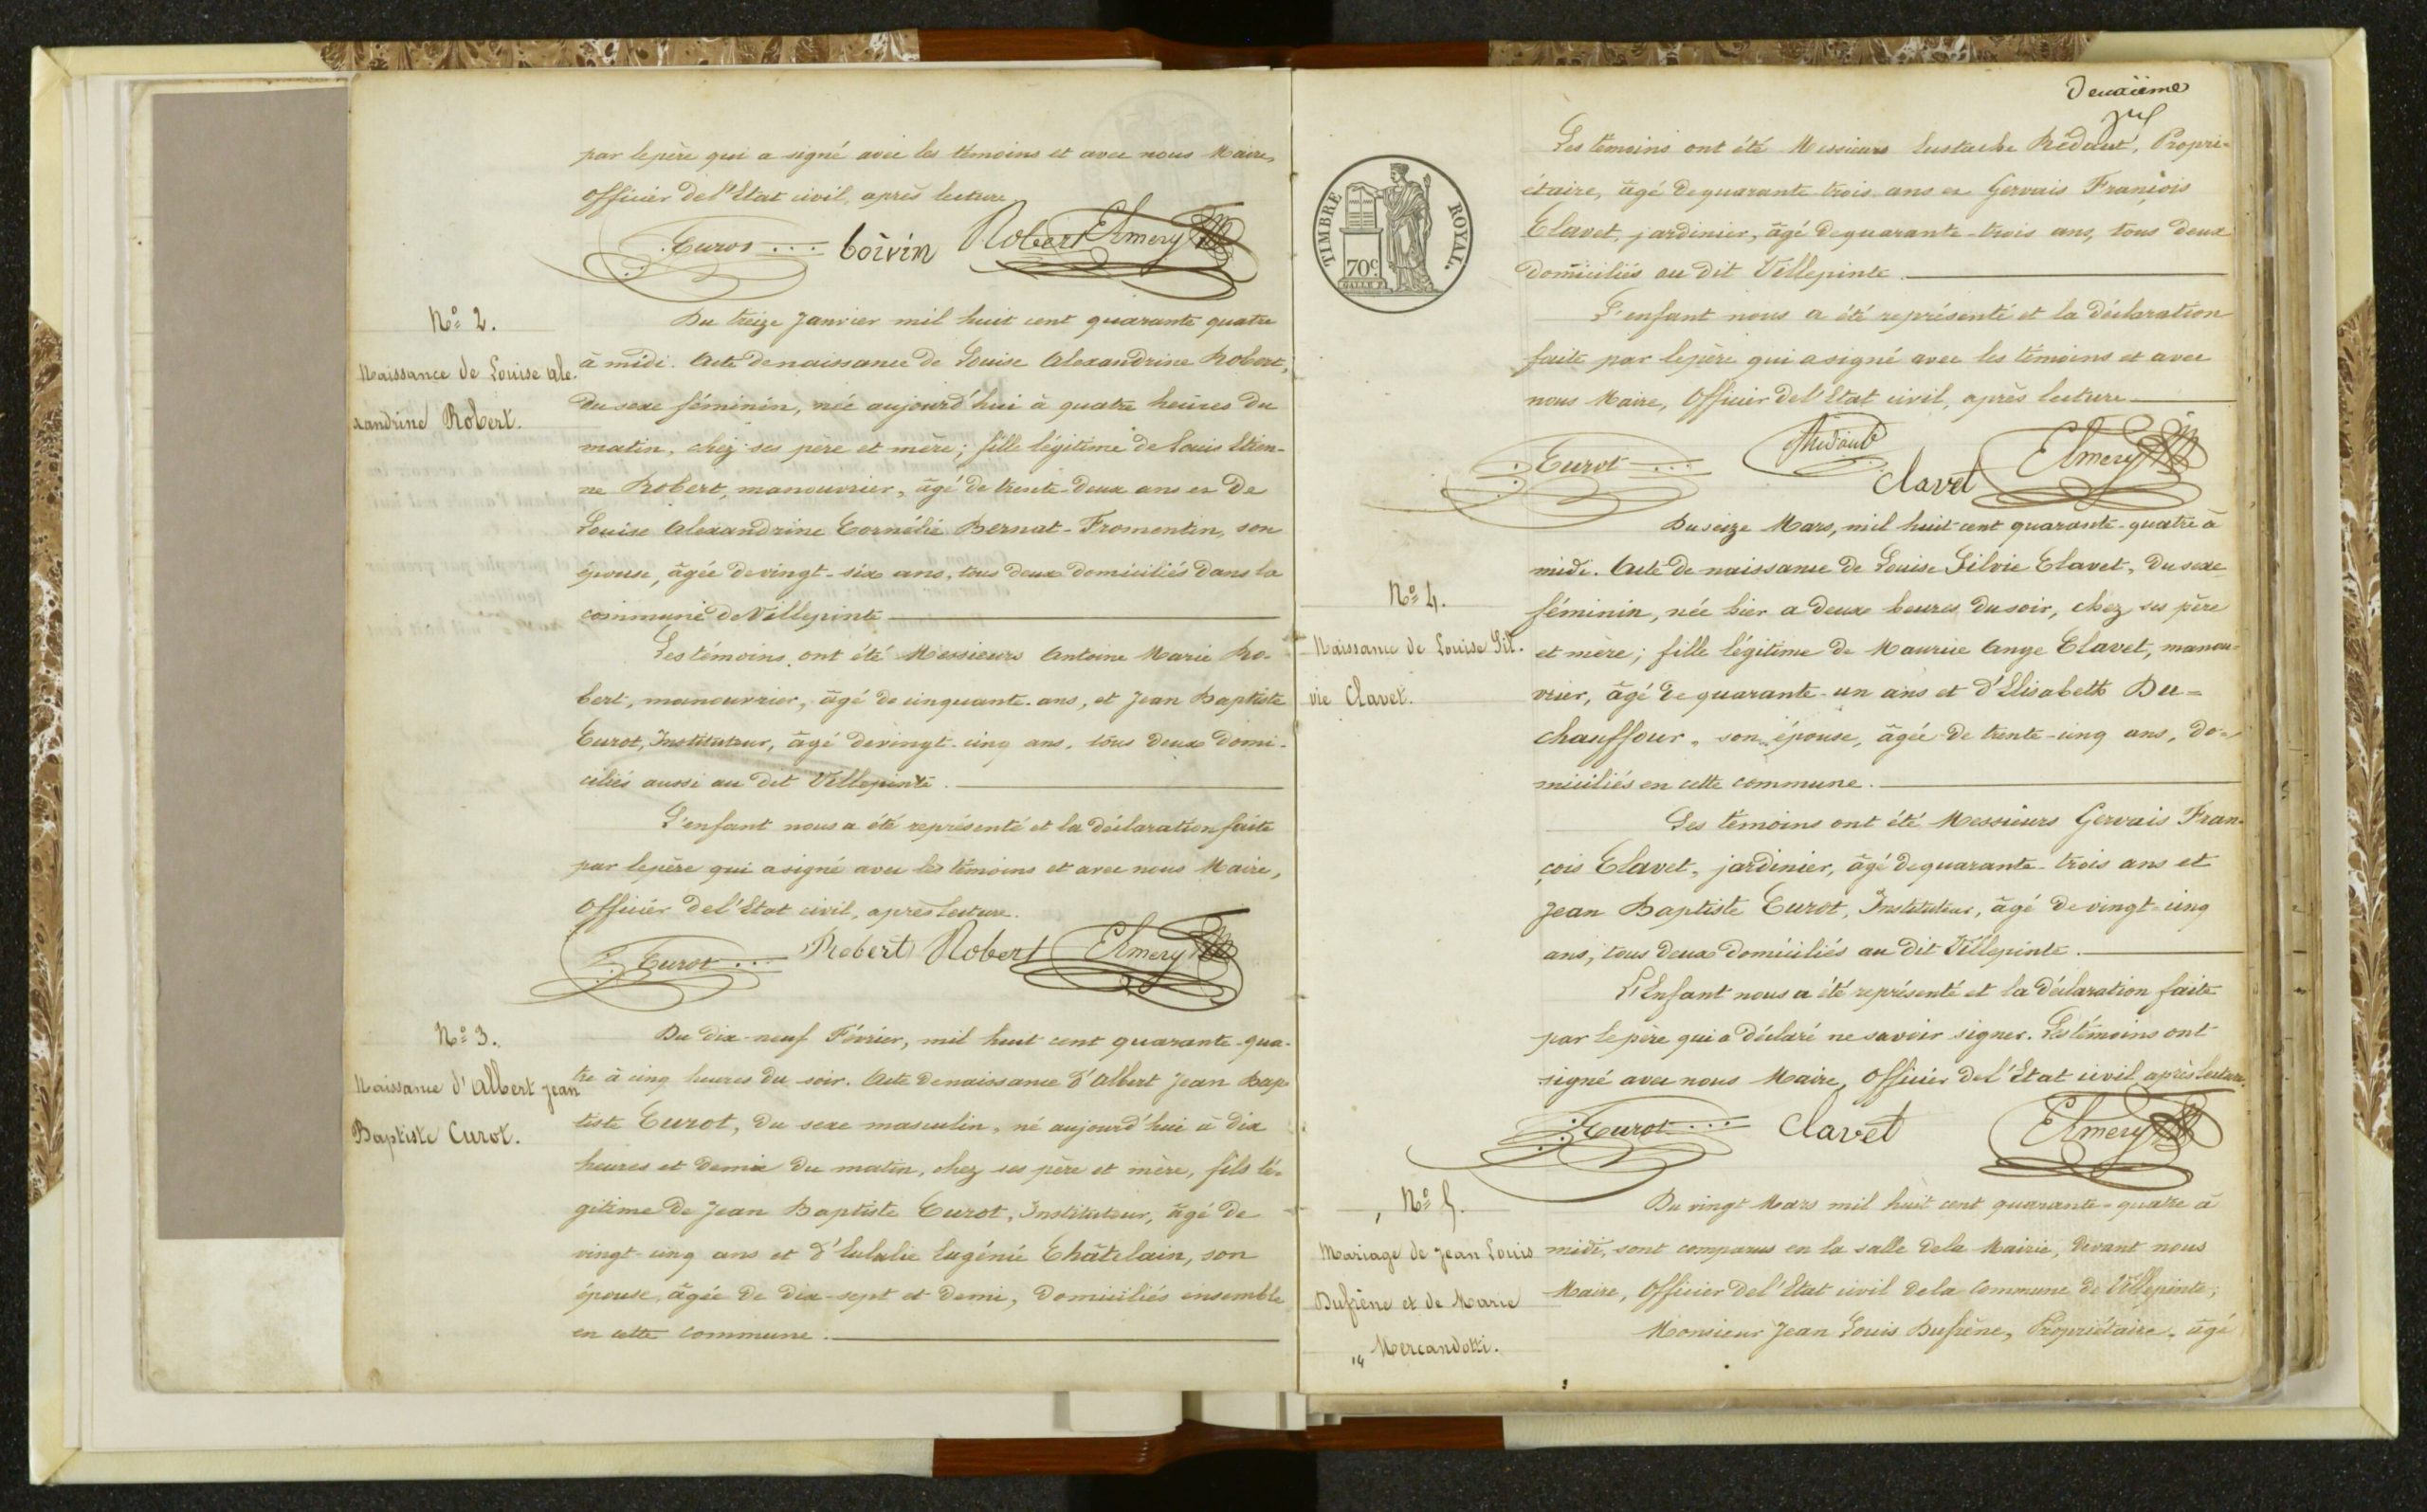 par le père qui a signé avec les témoins et avec nous Maire,
Officier de l'Etat civil, après lecture
Curot boivin Robert Emery
N° 2.
Naissance de Louise Ale-
xandrine Robert.
Du treize Janvier mil huit cent quarante quatre
à midi. Acte de naissance de Louise Alexandrine Robert,
du sexe féminin, née aujourd'hui à quatre heures du
matin, chez ses père et mère; fille légitime de Louis Etien-
ne Robert, manouvrier, âgé de trente-deux ans et de
Louise Alexandrine Cornélie Bernat-Fromentin, son
épouse, âgée de vingt-six ans, tous deux domiciliés dans la
commune de Villepinte
Les témoins ont été Messieurs Antoine Marie Ro-
bert, manouvrier, âgé de cinquante ans, et Jean Baptiste
Curot, Instituteur, âgé de vingt-cinq ans, tous deux domi-
ciliés aussi au dit Villepinte.
L'enfant nous a été représenté et la déclaration faite
par le père qui a signé avec les témoins et avec nous Maire,
Officier de l'Etat civil, après lecture.
Curot Robert Robert Emery
N° 3.
Naissance d'Albert Jean
Baptiste Curot.
Du dix-neuf Février, mil huit cent quarante-qua-
tre à cinq heures du soir. Acte de naissance d'Albert Jean Bap-
tiste Curot, du sexe masculin, né aujourd'hui à dix
heures et demie du matin, chez ses père et mère, fils lé-
gitime de Jean Baptiste Curot, Instituteur, âgé de
vingt-cinq ans et d'Eulalie Eugénie Châtelain, son
épouse, âgée de dix-sept et demi, domiciliés ensemble
en cette commune.
Deuxième
TIMBRE ROYAL.
70c
Les témoins ont été Messieurs Eustache Rédaut, Propri-
étaire, âgé de quarante trois ans et Gervais François
Clavet, jardinier, âgé de quarante-trois ans, tous deux
domiciliés au dit Villepinte.
L'enfant nous a été représenté et la déclaration
faite par le père qui a signé avec les témoins et avec
nous Maire, Officier de l'Etat civil, après lecture
Curot Clavet Emery
N° 4.
Naissance de Louise Sil-
vie Clavet.
Du seize Mars, mil huit cent quarante-quatre à
midi. Acte de naissance de Louise Silvie Clavet, du sexe
féminin, née hier à deux heures du soir, chez ses père
et mère; fille légitime de Maurice Ange Clavet, manou-
vrier, âgé de quarante-un ans et d'Elisabeth Du-
chauffour, son épouse, âgée de trente-cinq ans, do-
miciliés en cette commune.
Les témoins ont été Messieurs Gervais Fran-
çois Clavet, jardinier, âgé de quarante-trois ans et
Jean Baptiste Curot, Instituteur, âgé de vingt-cinq
ans, tous deux domiciliés au dit Villepinte.
L'Enfant nous a été représenté et la déclaration faite
par le père qui a déclaré ne savoir signer. Les témoins ont
signé avec nous Maire, Officier de l'Etat civil après lecture.
Curot Clavet Emery
N° 5.
Mariage de Jean Louis
Dufrène et de Marie
Mercandotti.
Du vingt Mars mil huit cent quarante-quatre à
midi, sont comparus en la salle de la Mairie, devant nous
Maire, Officier de l'Etat civil de la Commune de Villepinte,
Monsieur Jean Louis Dufrène, Propriétaire, âgé